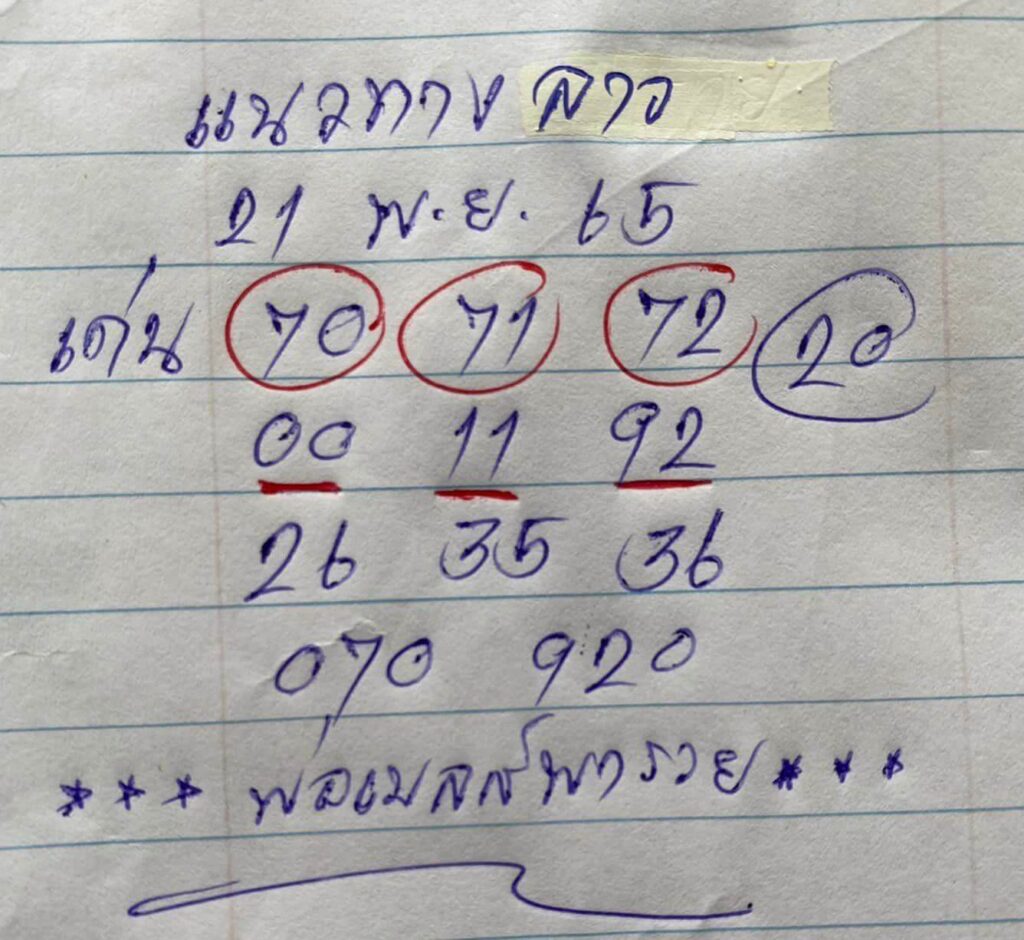 แนวทาง ลาว
21 พ.ย. 65
เด่น 70 71 72 20
00 11 92
26 35 36
070 920
*** พ่อเบลล์พารวย ***